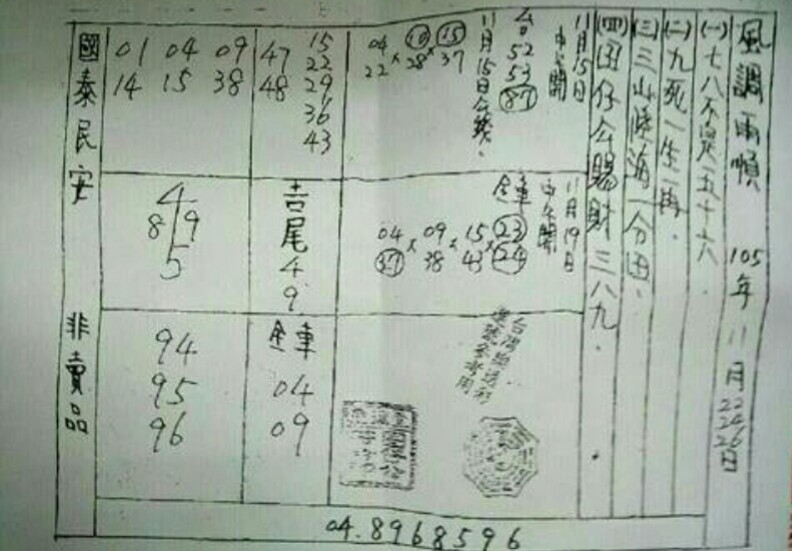 風調雨順 105年 11月22 24 26日
(一)七八不是五十六.
(二)九死一生一再.
(三)三山陸海一分田.
(四)田仔公賜財三八九.
11月15日
中午開
台
52
53
87
11月15日公錢.
04 × 10 × 15
22 38 37
15
22
47 29
48 36
43
01 04 09
14 15 38
國泰民安
11月19日
中午開
全車
04 × 09 × 15 × 23
37 38 43 24
吉尾
4
9
4
8 9
5
全車
04
09
94
95
96
非賣品
04.8968596